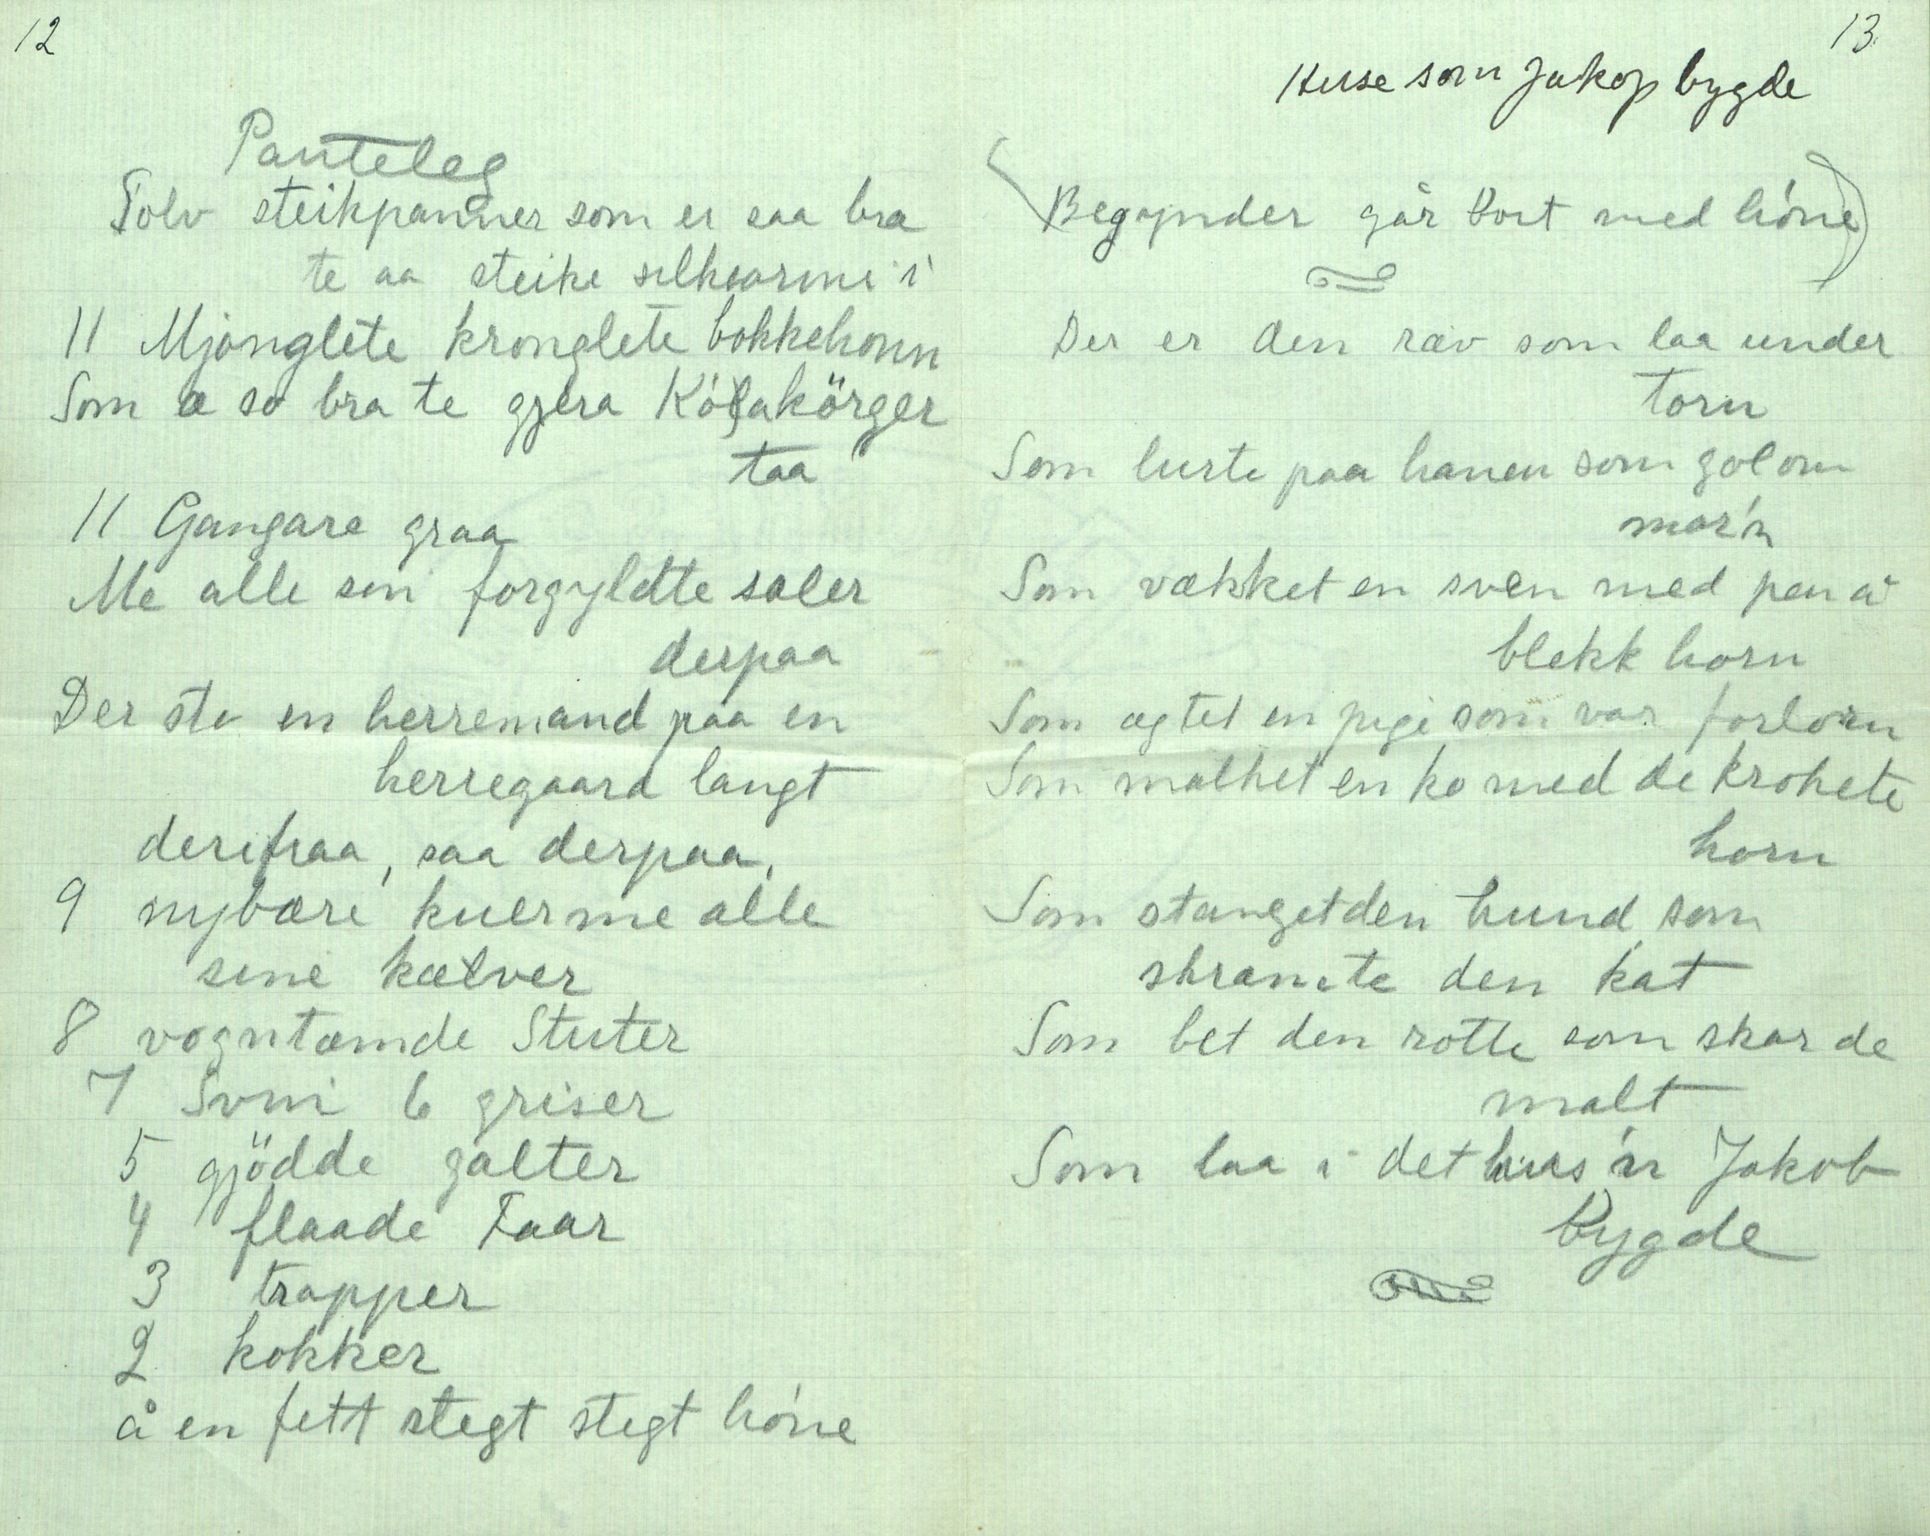 12
Panteleg
Tolv steikpanner som er saa bra
te aa steike silkeormi i
11 Mjonglete kronglete bokkehonn
Som æ so bra te gjera Kólakörger
taa
11 Gangare graa
Me alle sin forgyldte saler
derpaa
Der sto en herremand paa en
herregaard langt
derifraa, saa derpaa,
9 nybære kuer me alle
sine kælver
8 vogntæmde Stuter
7 Svin 6 griser
5 gjödde galter
4 flaade Faar
3 trapper
2 kokker
å en fett stegt stegt höne
13.
Huse som Jakop bygde
(Begynder går bort med höne)
Der er den ræv som laa under
torn
Som lurte paa hanen som gol om
mor'n
Som vækket en sven med pen å
blekk horn
Som ægtet en pige som var forlorn
Som malket en ko med de krokete
horn
Som stanget den hund som
skræmte den kat
Som bet den rotte som skar de
malt
Som laa i det hus 'n Jakob
bygde